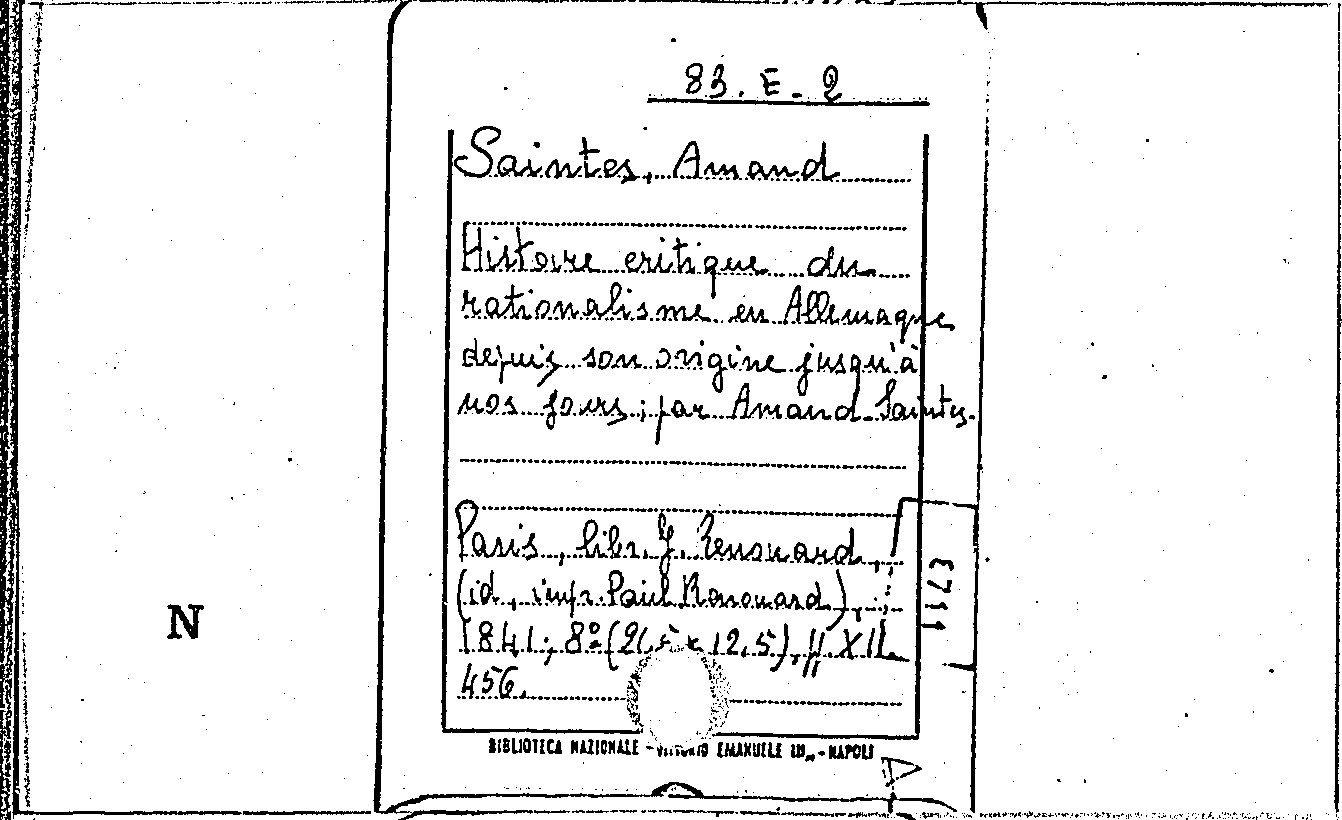 83. E - 2
Saintes, Amand
Histoire critique du
rationalisme en Allemagne
depuis son origine jusqu'à
nos jours; par Amand Saintes.
Paris, libr. J. Renouard,
(id, impr. Paul Renouard),
1841; 8º (21,5 x 12,5), pp. XII.
456.
N
BIBLIOTECA NAZIONALE - VITTORIO EMANUELE III„ - NAPOLI